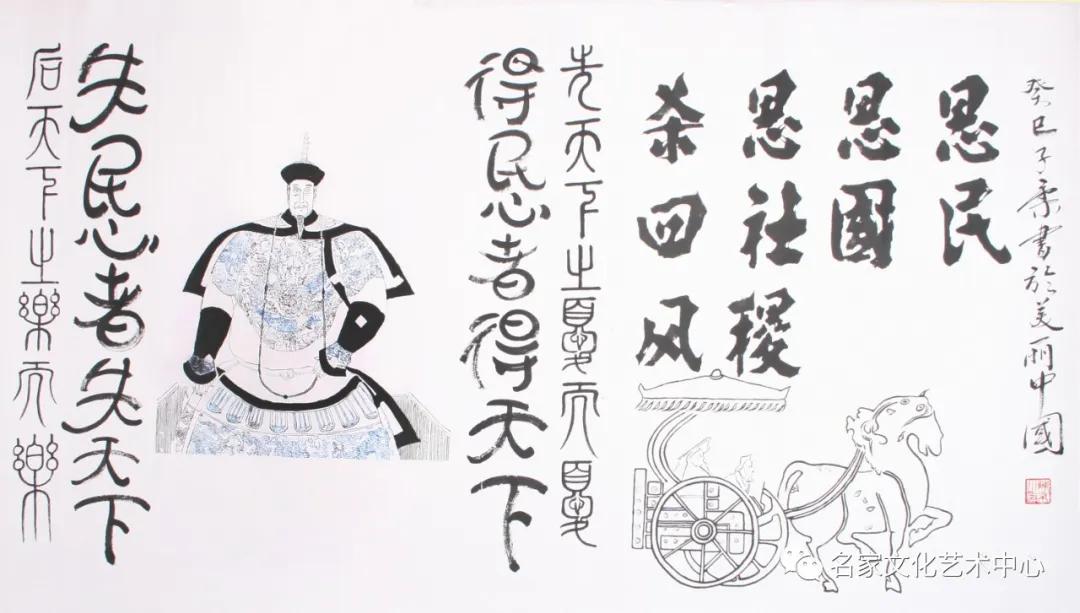 癸巳子書於美丽中國
思民
思國
思社稷
杀回风
先天下之憂而憂
得民心者得天下
失民心者失天下
后天下之樂而樂
名家文化艺术中心